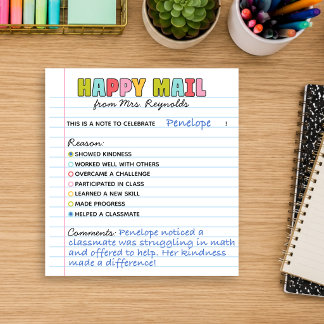 HAPPY MAIL
from Mrs. Reynolds
THIS IS A NOTE TO CELEBRATE Penelope !
Reason:
SHOWED KINDNESS
WORKED WELL WITH OTHERS
OVERCAME A CHALLENGE
PARTICIPATED IN CLASS
LEARNED A NEW SKILL
MADE PROGRESS
HELPED A CLASSMATE
Comments: Penelope noticed a
classmate was struggling in math
and offered to help. Her kindness
made a difference!